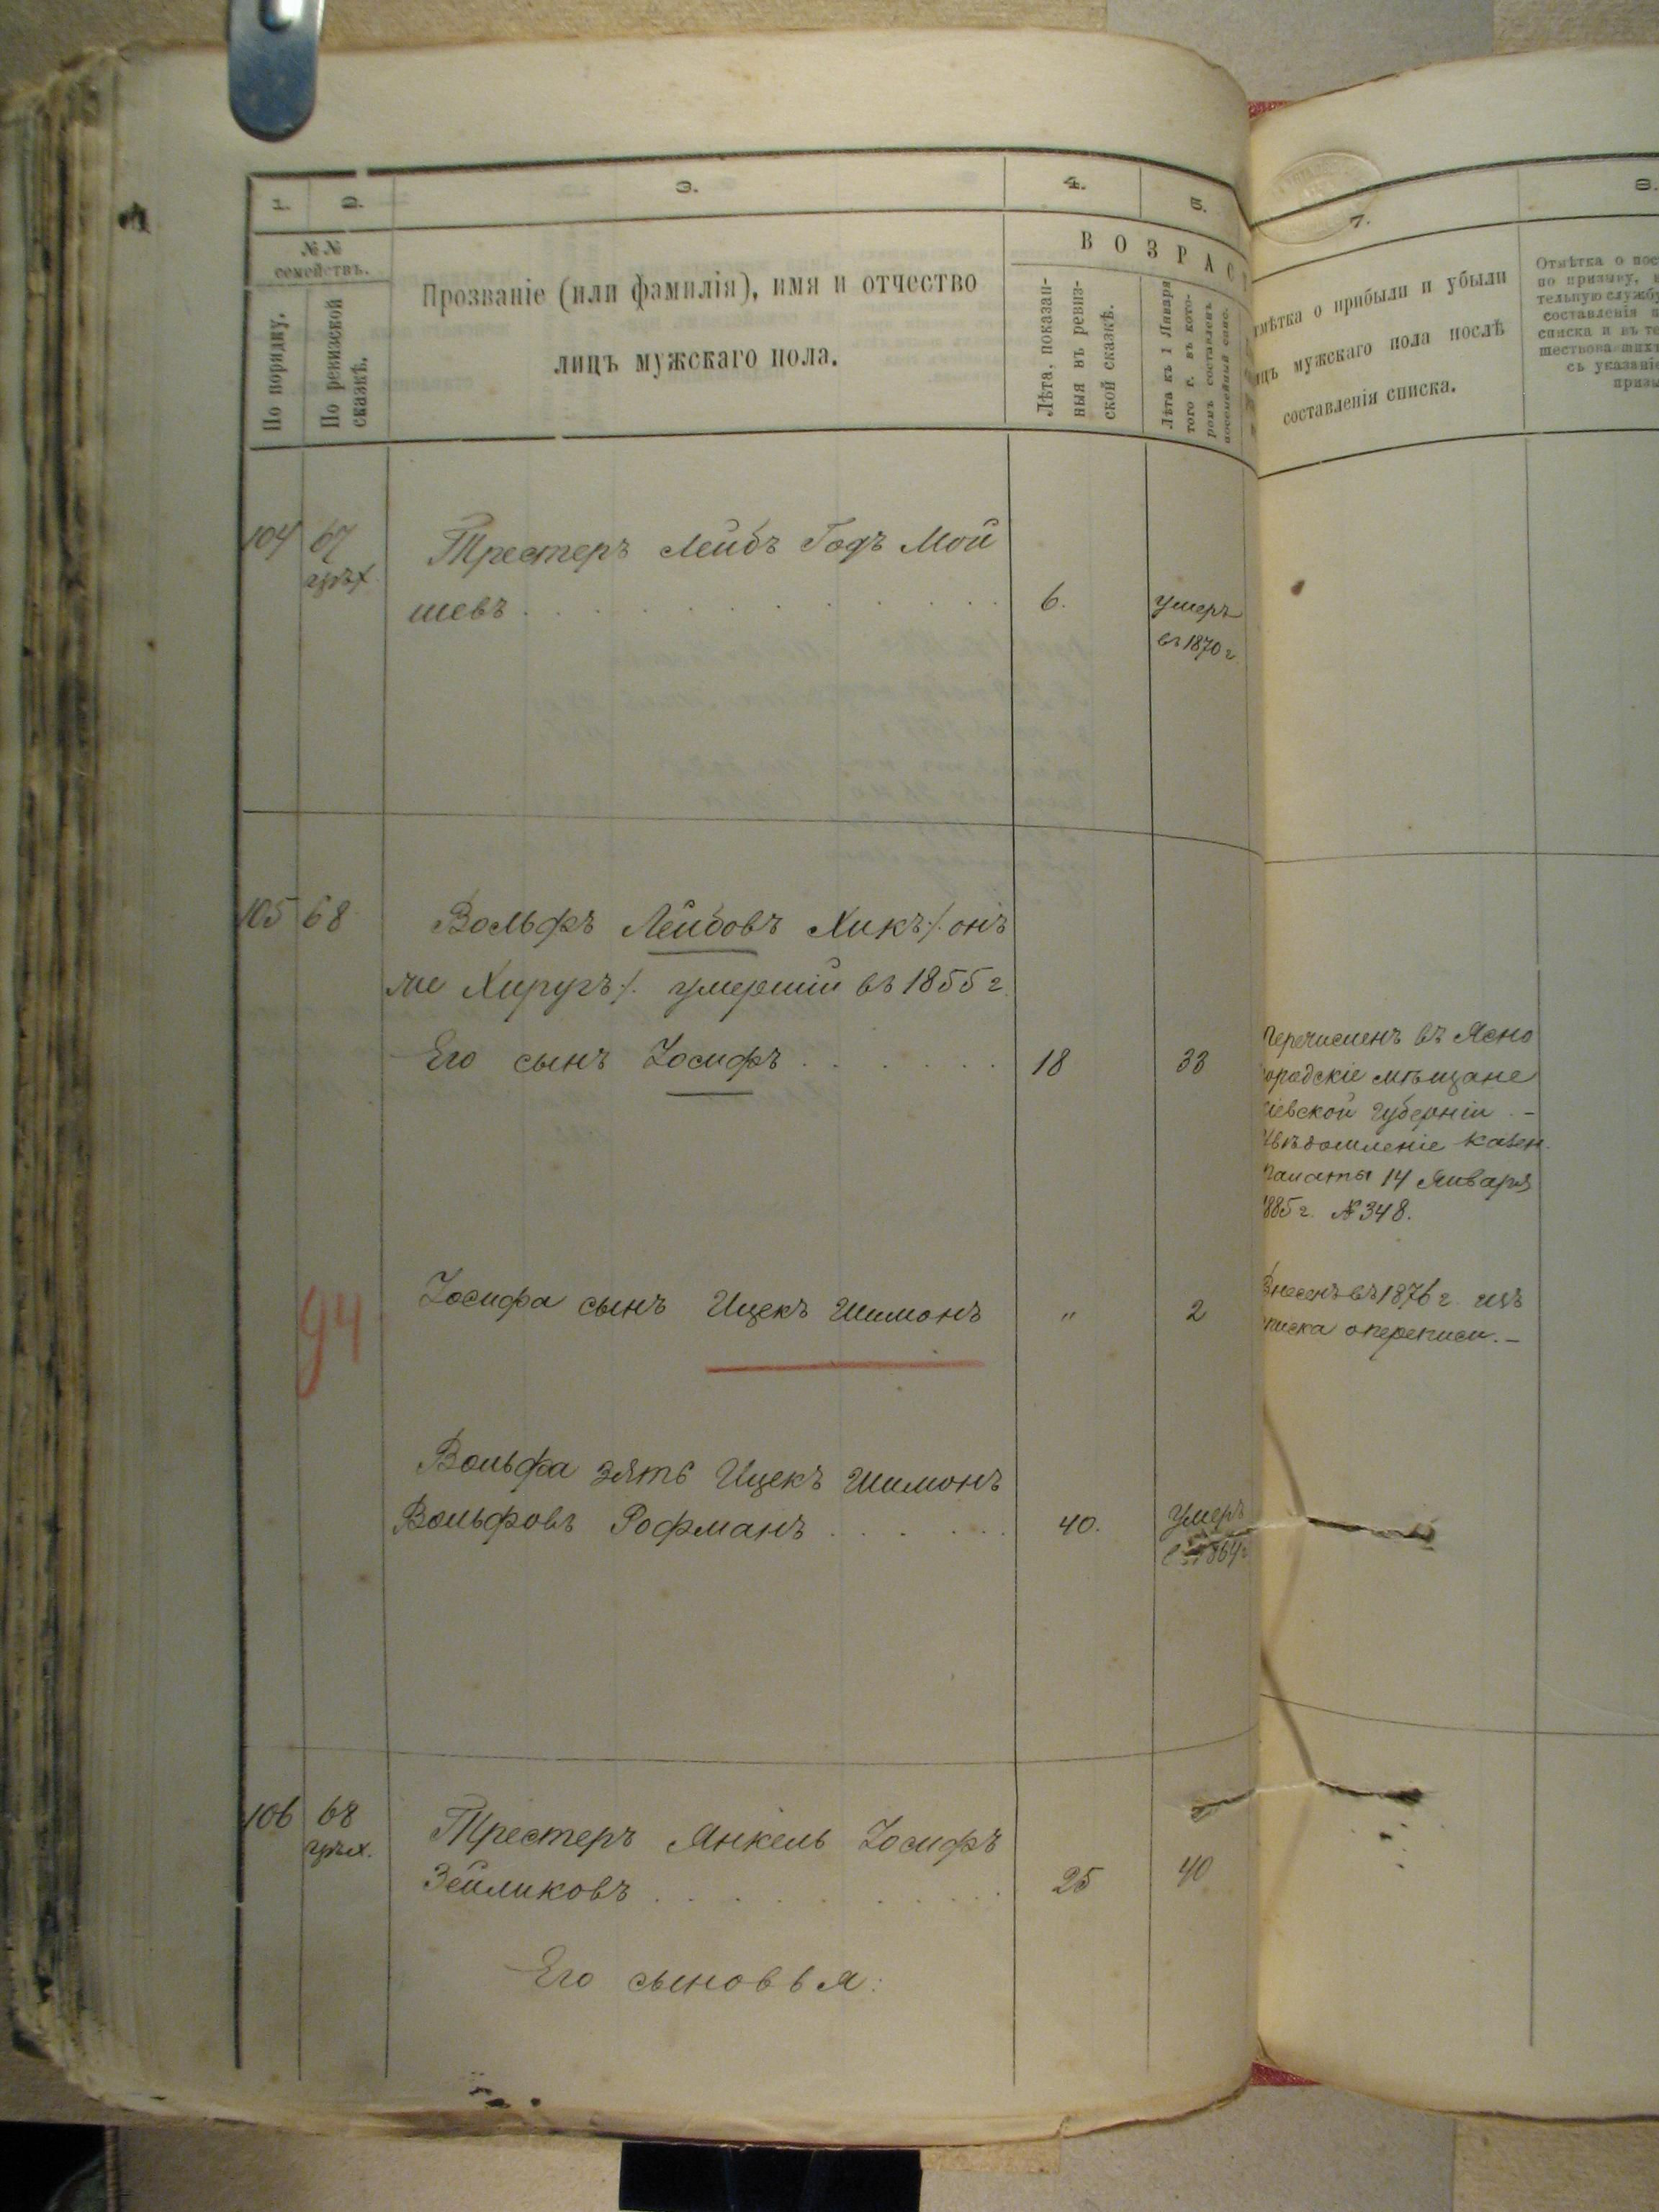 1. 2. 3. 4. 5. 7. 8.
№№ семействъ.
По порядку.
По ревизской сказкѣ.
Прозваніе (или фамилія), имя и отчество
лицъ мужскаго пола.
ВОЗРАС
Лѣта, показан-
ныя въ ревиз-
ской сказкѣ.
Лѣта къ 1 Января
того г. въ кото-
ромъ составленъ
посемейный спис.
мѣтка о прибыли и убыли
ицъ мужскаго пола послѣ
составленія списка.
Отмѣтка о пос
по призыву, в
тельную службу
составленія п
списка и въ те
шествовавшихъ
съ указаніе
призы
104 67 Трестеръ Лейбъ Годъ Мой
цѣх.
шевъ 6. умеръ
въ 1870 г.
105 68 Вольфъ Лейбовъ Хикъ /. онъ
же Хиругъ /. умершій въ 1855 г.
Его сынъ Іосифъ 18 33
Перечисленъ въ Ясно
ородскіе мѣщане
іевской Губерніи. –
Увѣдомленіе Казен.
Палаты 14 Января
1885 г. № 348.
94 Іосифа сынъ Ицекъ Шимонъ " 2
Внесенъ въ 1876 г. изъ
писка о переписи. –
Вольфа зять Ицекъ Шимонъ
Вольфовъ Рофманъ 40. Умеръ
въ 1864 г
106 68 Трестеръ Янкель Іосифъ
цѣх.
Зейликовъ 25 40
Его сыновья: